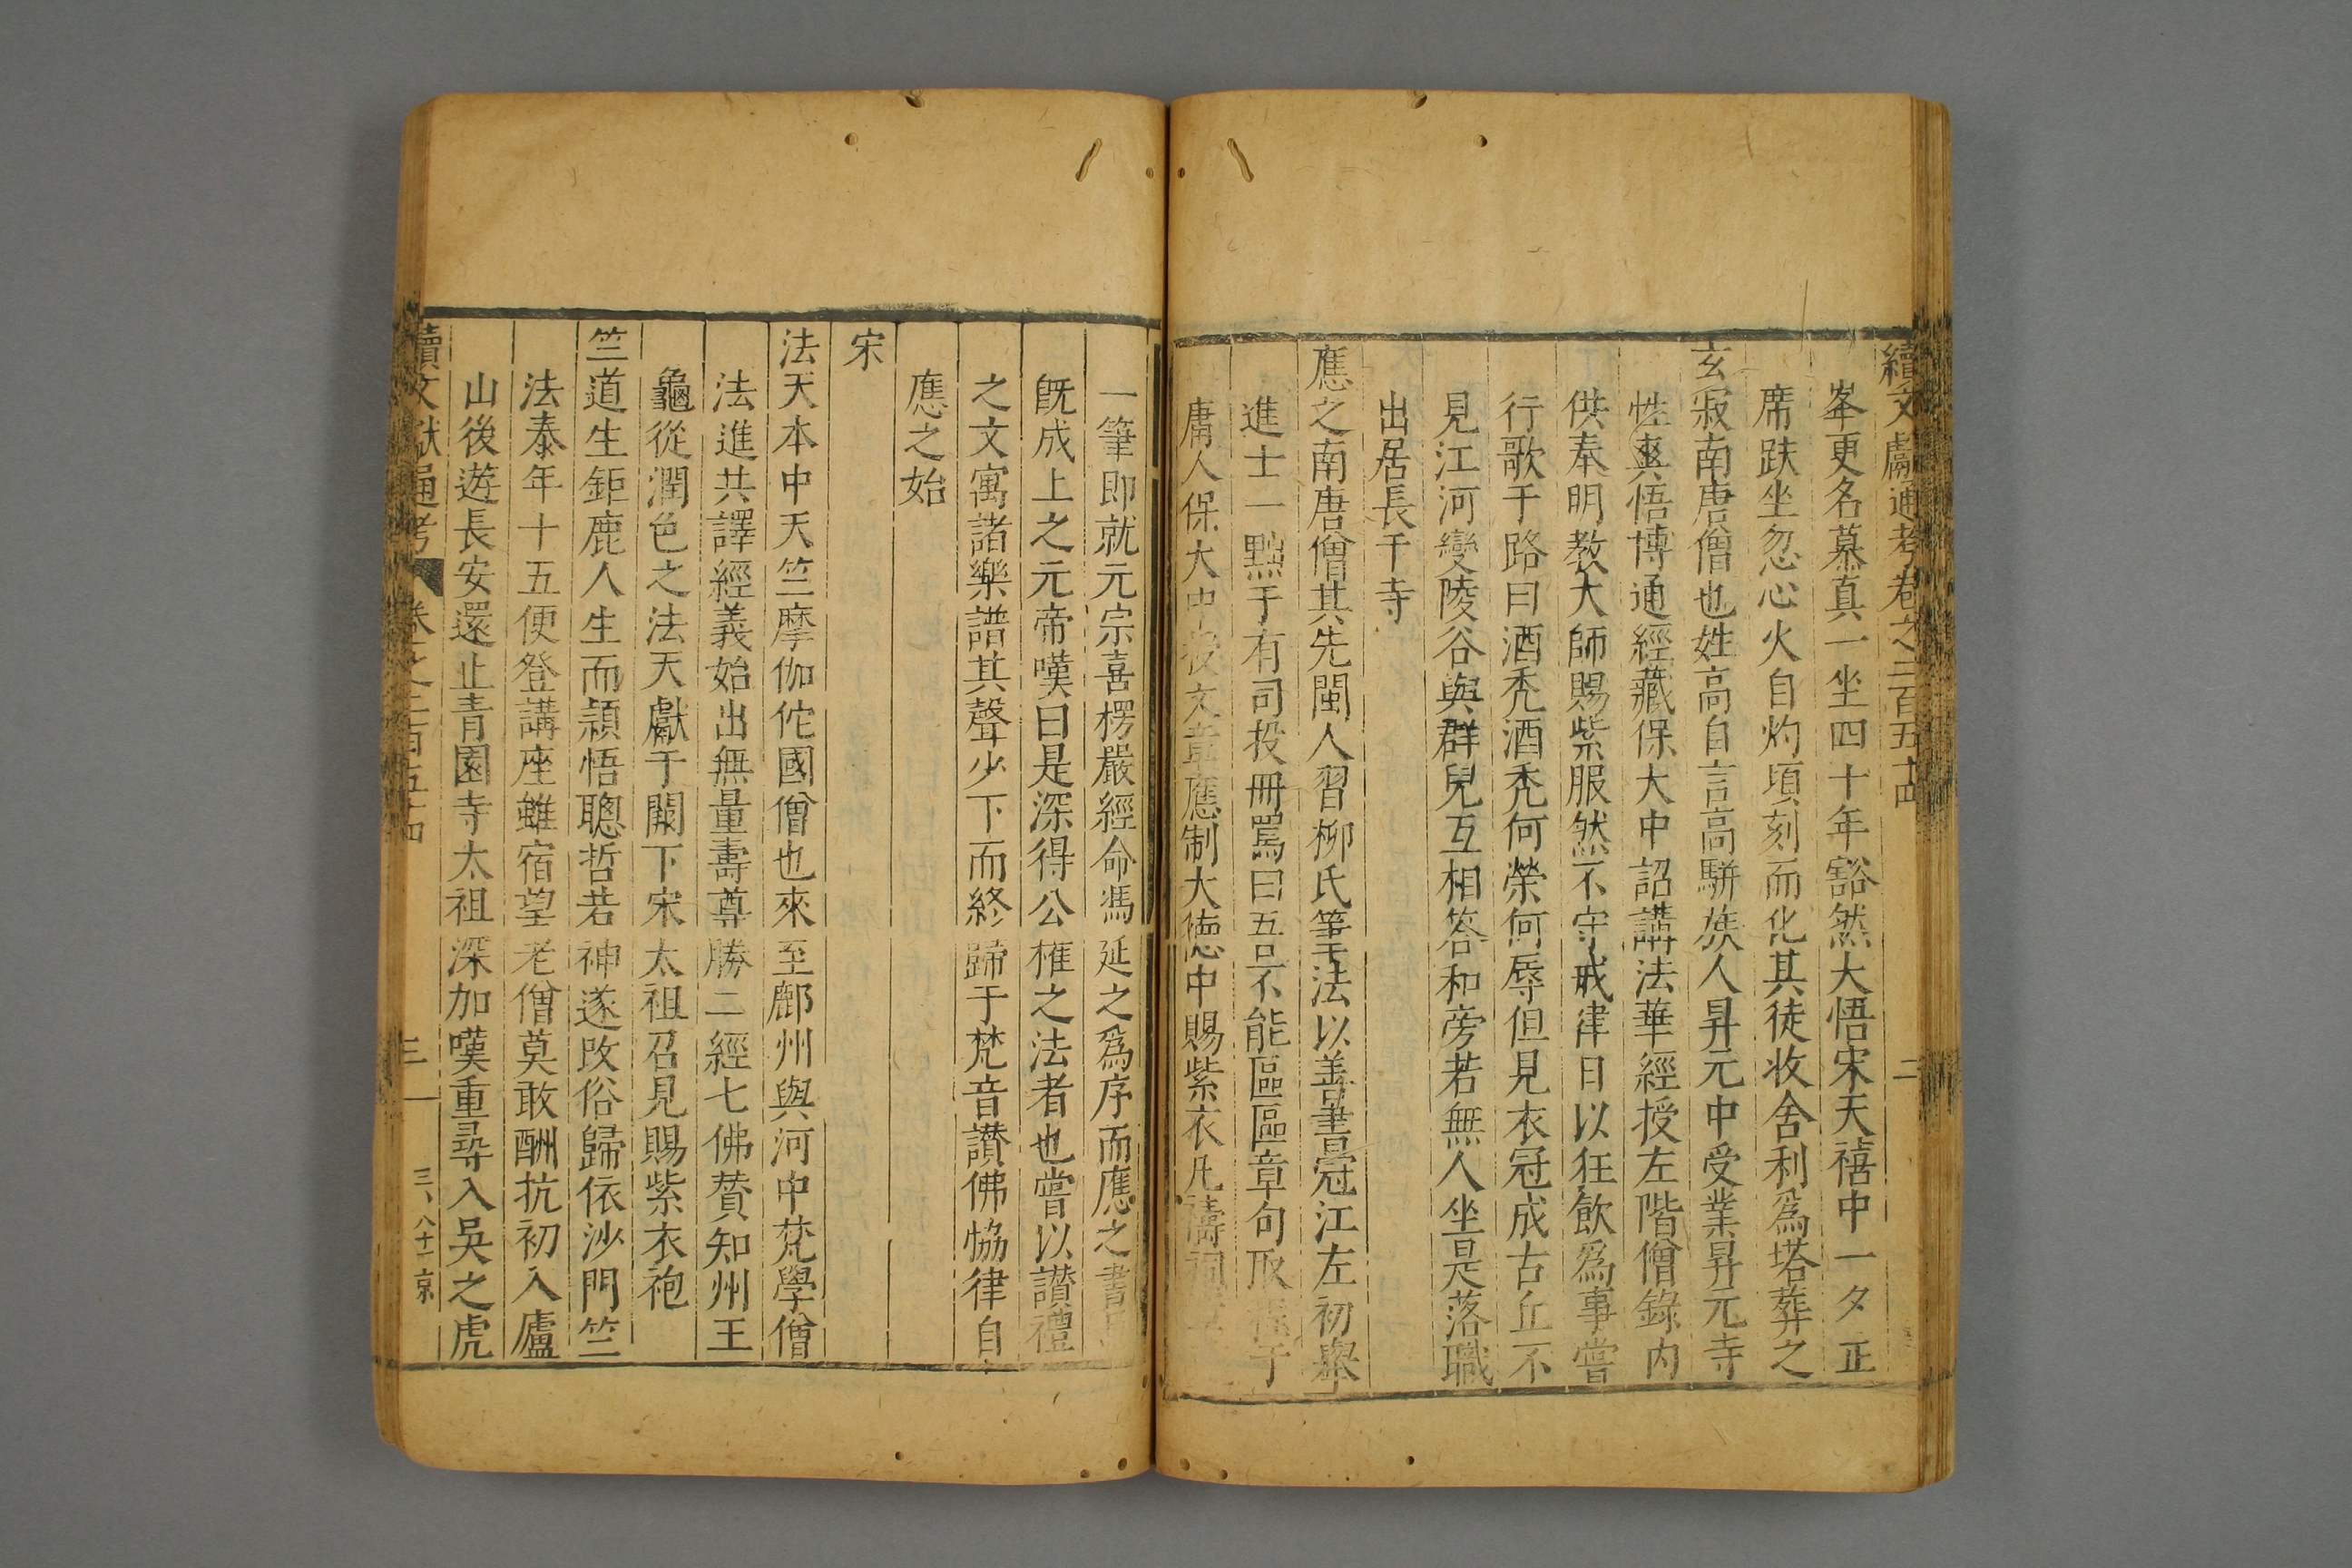 續文獻通考卷之二百五十四 二
峯更名慕真一坐四十年豁然大悟宋天禧中一夕正
席趺坐忽心火自灼頃刻而化其徒收舍利爲塔葬之
玄寂南唐僧也姓高自言高駢族人昇元中受業昇元寺
性爽悟博通經藏保大中詔講法華經授左階僧錄内
供奉明教大師賜紫服然不守戒律日以狂飲爲事嘗
行歌于路曰酒秃酒秃何榮何辱但見衣冠成古丘不
見江河變陵谷與群兒互相答和旁若無人坐是落職
出居長干寺
應之南唐僧其先閩人習柳氏筆法以善書冠江左初舉
進士一黜于有司投冊罵曰吾不能區區章句取 于
庸人保大中 文章應制大德中賜紫衣凡禱祠
一筆即就元宗喜楞嚴經命馮延之爲序而應之書
旣成上之元帝嘆曰是深得公權之法者也嘗以讃禮
之文寓諸樂譜其聲少下而終歸于梵音讃佛恊律自
應之始
宋
法天本中天竺摩伽佗國僧也來至鄜州與河中梵學僧
法進共譯經義始出無量壽尊勝二經七佛賛知州王
龜從潤色之法天獻于闕下宋太祖召見賜紫衣袍
竺道生鉅鹿人生而頴悟聰哲若神遂攺俗歸依沙門竺
法泰年十五便登講座雖宿望老僧莫敢酬抗初入廬
山後遊長安還止青園寺太祖深加嘆重尋入吳之虎
續文獻通考 卷之二百五十四 三 三、八十一京